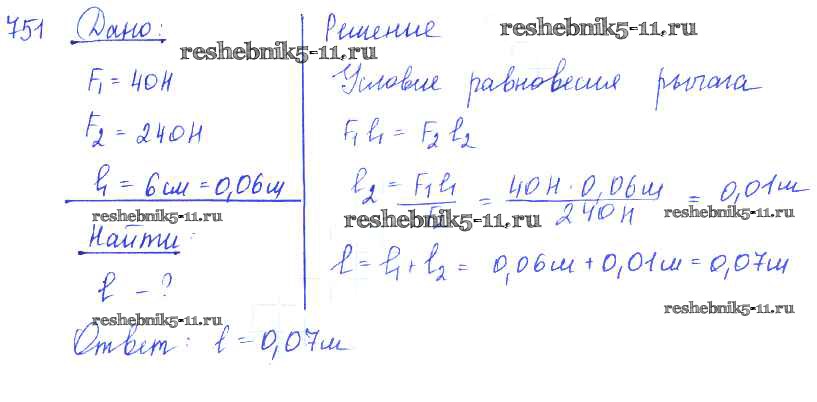 751 Дано:
reshebnik5-11.ru
F₁ = 40Н
F₂ = 240Н
l₁ = 6см = 0,06м
reshebnik5-11.ru
Найти:
l - ?
reshebnik5-11.ru
Решение reshebnik5-11.ru
Условие равновесия рычага
F₁l₁ = F₂l₂
l₂ = F₁l₁/F₂ = 40Н · 0,06м/240Н = 0,01м
reshebnik5-11.ru reshebnik5-11.ru
l = l₁ + l₂ = 0,06м + 0,01м = 0,07м
reshebnik5-11.ru
Ответ: l = 0,07м